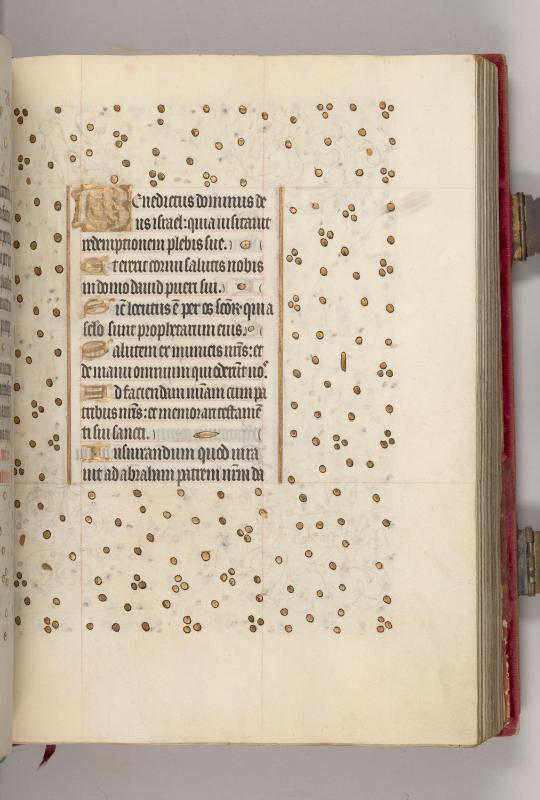 Benedictus dominus de
us israel: quia uisitauit
redemptionem plebis sue.
Et erexit cornu salutis nobis
in domo dauid pueri sui.
Sic̄ locutus ē per os scōꝝ qui a
sclo sunt prophetarum eius.
Salutem ex inimicis nr̄is: et
de manu omnium qui oderūt nos
Ad faciendam mīam cum pa
tribus nr̄is: et memorari testamē
ti sui sancti.
Iusiurandum quod iura
uit ad abraham patrem nr̄m da